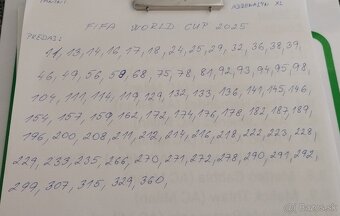 FIFA WORLD CUP 2025
PREDAJ:
11, 13, 14, 16, 17, 18, 24, 25, 29, 32, 36, 38, 39,
46, 49, 56, 59, 68, 75, 78, 81, 92, 93, 94, 95, 98,
104, 111, 114, 119, 129, 132, 133, 136, 141, 145, 146,
154, 157, 159, 162, 172, 174, 176, 178, 182, 187, 189,
196, 200, 208, 211, 212, 214, 216, 218, 222, 223, 228,
229, 233, 235, 266, 270, 271, 272, 278, 290, 291, 292,
299, 307, 315, 329, 360,
bazos.sk